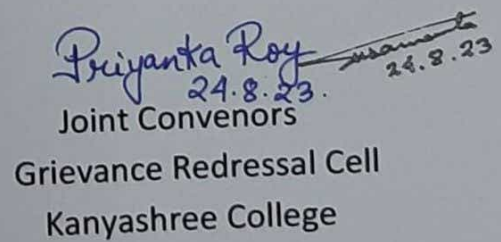 Priyanka Roy
24.8.23. 24.8.23
Joint Convenors
Grievance Redressal Cell
Kanyashree College